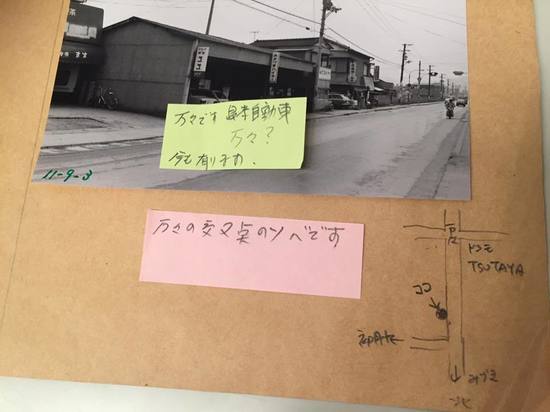 万々です 島本自動車
万々?
今も有りますか.
11-9-3
万々の交叉点のソバです
ドコモ
TSUTAYA
ココ
北